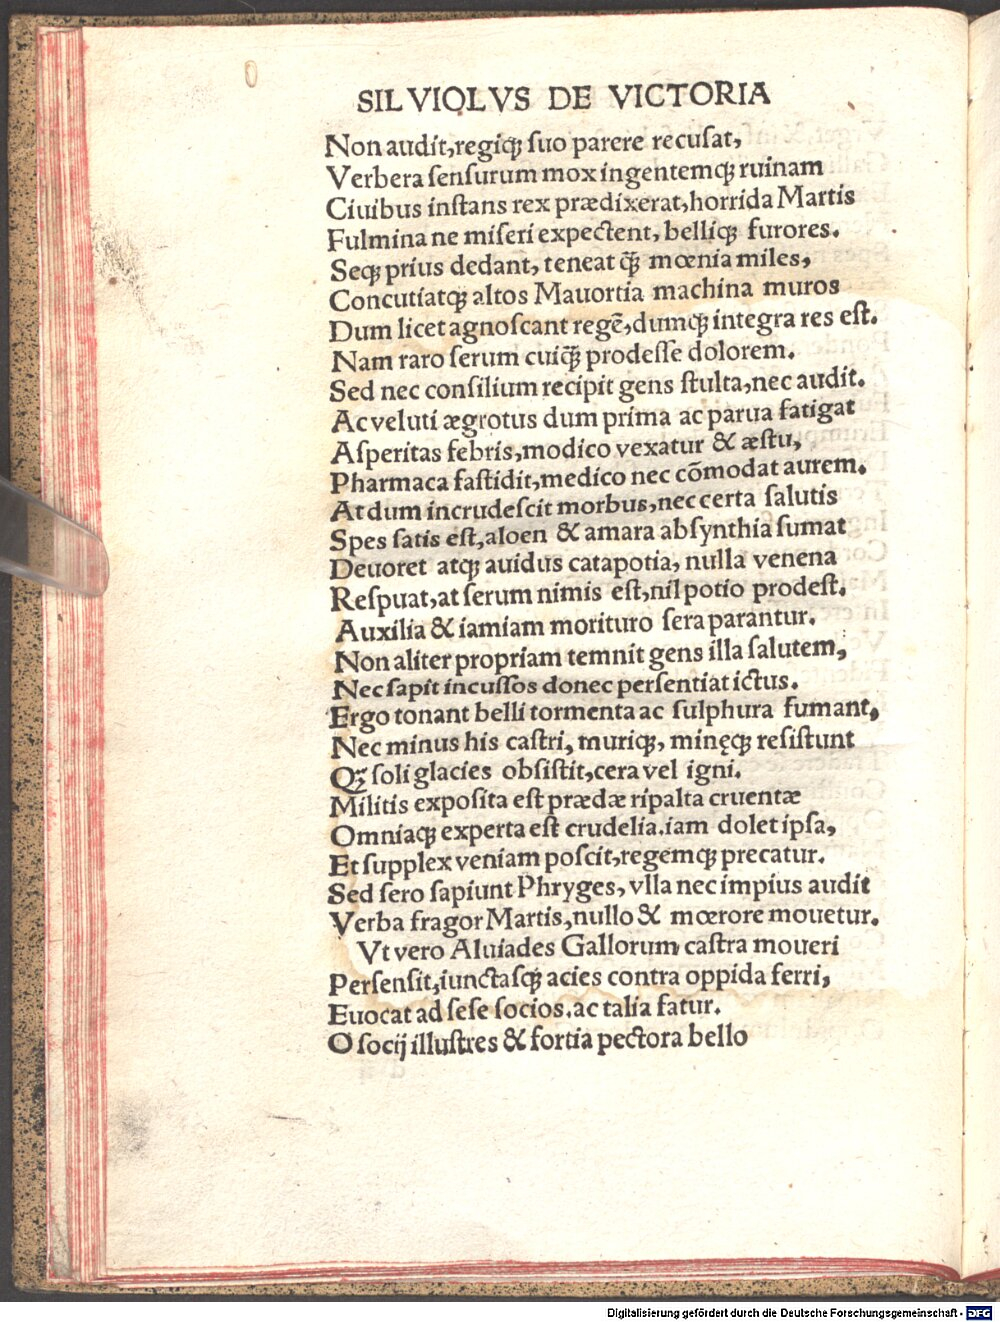 SILVIOLVS DE VICTORIA
Non audit,regiqꝫ suo parere recusat,
Verbera sensurum mox ingentemqꝫ ruinam
Ciuibus instans rex prædixerat,horrida Martis
Fulmina ne miseri expectent, belliqꝫ furores.
Seqꝫ prius dedant, teneat q̃ꝫ mœnia miles,
Concutiatqꝫ altos Mauortia machina muros
Dum licet agnoscant regẽ,dumqꝫ integra res est.
Nam raro serum cuiq̃ꝫ prodesse dolorem.
Sed nec consilium recipit gens stulta,nec audit.
Ac veluti ægrotus dum prima ac parua fatigat
Asperitas febris,modico vexatur & æstu,
Pharmaca fastidit,medico nec cõmodat aurem.
At dum incrudescit morbus,nec certa salutis
Spes satis est,aloen & amara absynthia sumat
Deuoret atqꝫ auidus catapotia, nulla venena
Respuat,at serum nimis est,nil potio prodest.
Auxilia & iamiam morituro sera parantur.
Non aliter propriam temnit gens illa salutem,
Nec sapit incussos donec persentiat ictus.
Ergo tonant belli tormenta ac sulphura fumant,
Nec minus his castri, muriqꝫ, minęqꝫ resistunt
Qꝫ soli glacies obsistit,cera vel igni.
Militis exposita est prædæ ripalta cruentæ
Omniaqꝫ experta est crudelia.iam dolet ipsa,
Et supplex veniam poscit,regemqꝫ precatur.
Sed sero sapiunt Phryges, vlla nec impius audit
Verba fragor Martis,nullo & mœrore mouetur.
Vt vero Aluiades Gallorum castra moueri
Persensit,iunctasqꝫ acies contra oppida ferri,
Euocat ad sese socios.ac talia fatur.
O socij illustres & fortia pectora bello
Digitalisierung gefördert durch die Deutsche Forschungsgemeinschaft - DFG